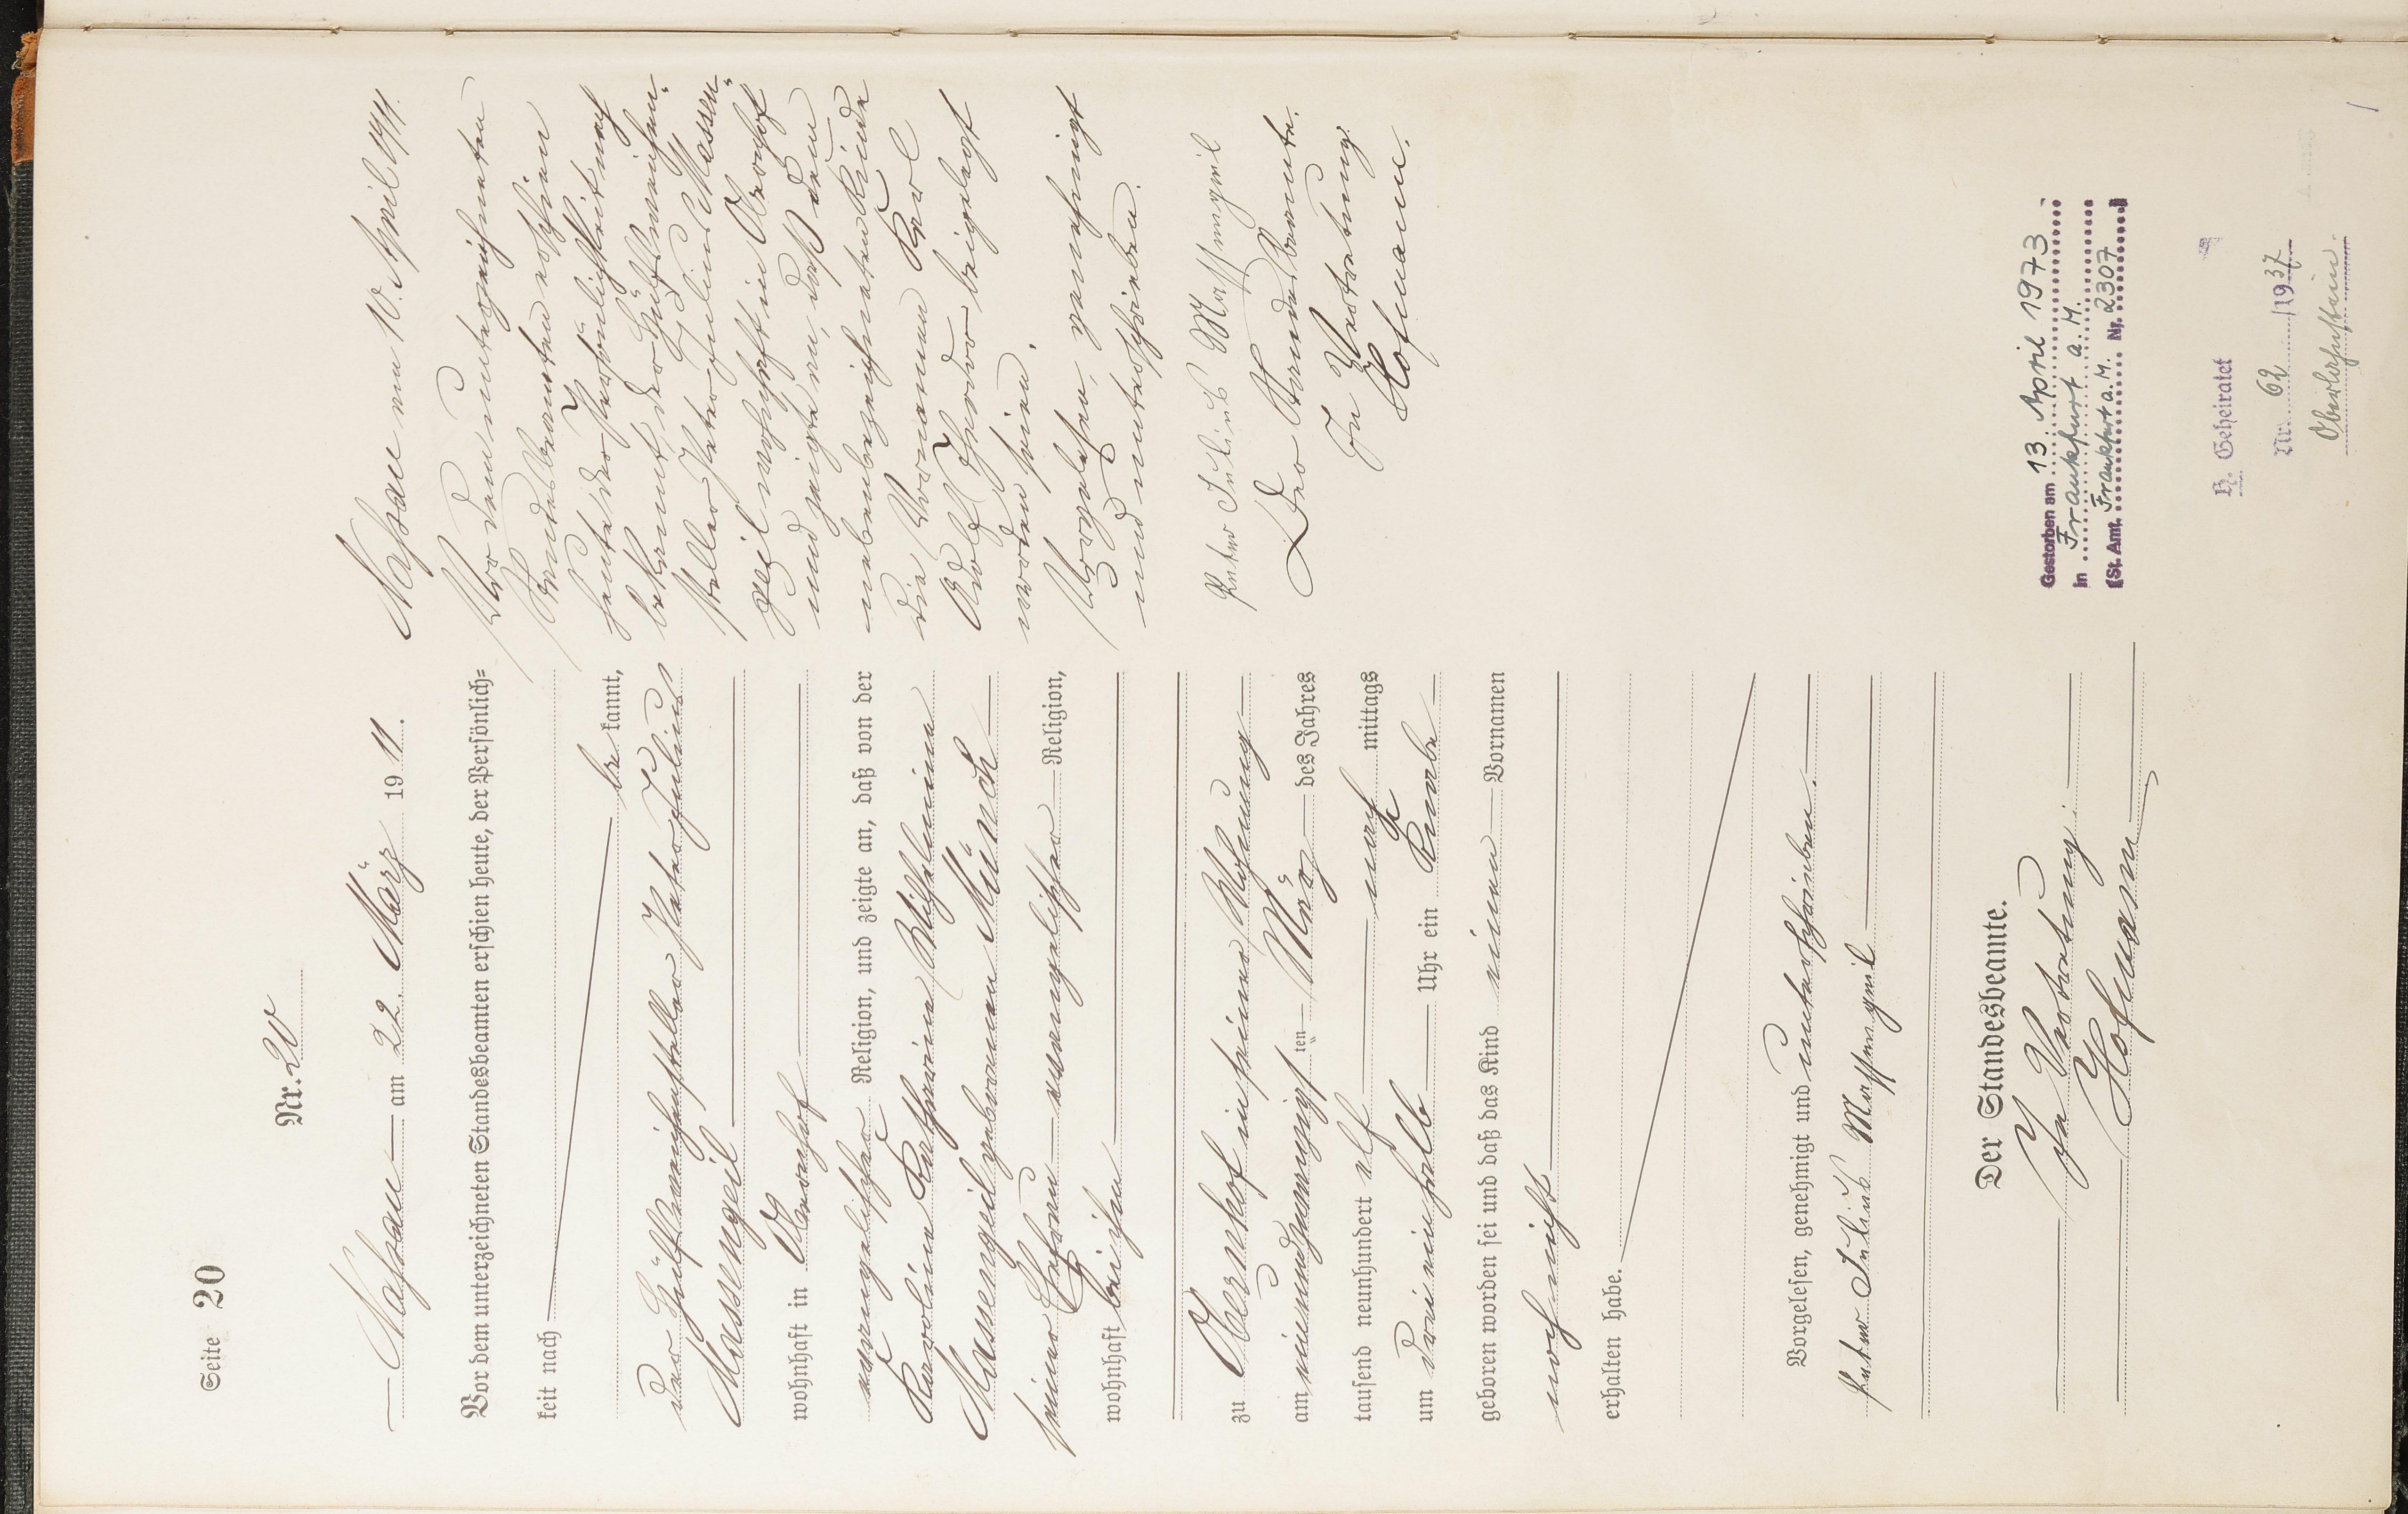 Seite 20
Nr. 20
Nassau am 22. März 1911.
Vor dem unterzeichneten Standesbeamten erschien heute, der Persönlich=
keit nach
be kannt,
der Hülfsweichensteller Peter Julius
Massengeil
wohnhaft in Obernhof
evangelischer Religion, und zeigte an, daß von der
Karoline Katharina Wilhelmine
Massengeil geborenen Münch
seiner Ehefrau evangelischer Religion,
wohnhaft bei ihm
zu Obernhof in seiner Wohnung
am einundzwanzigsten März des Jahres
tausend neunhundert elf nach mittags
um drei ein halb Uhr ein Knabe
geboren worden sei und daß das Kind einen Vornamen
noch nicht
erhalten habe.
Vorgelesen, genehmigt und unterschrieben.
Peter Julius Massengeil
Der Standesbeamte.
In Vertretung:
Hofmann
Nassau am 10. April 1911.
Vor dem unterzeichneten
Standesbeamten erschien
heute, der Persönlichkeit nach
bekannt, der Hülfsweichen-
steller Peter Julius Massen-
geil wohnhaft in Obernhof
und zeigte an, daß dem
nebenbezeichneten Kinde
die Vornamen Karl
Adolf Theodor beigelegt
worden seien.
Vorgelesen, genehmigt
und unterschrieben.
Peter Julius Massengeil
Der Standesbeamte.
In Vertretung:
Hofmann.
Gestorben am 13. April 1973
in Frankfurt a. M.
(St. Amt. Frankfurt a. M. Nr. 2307)
H. Geheiratet
Nr. 62 /1937
Oberlahnstein.